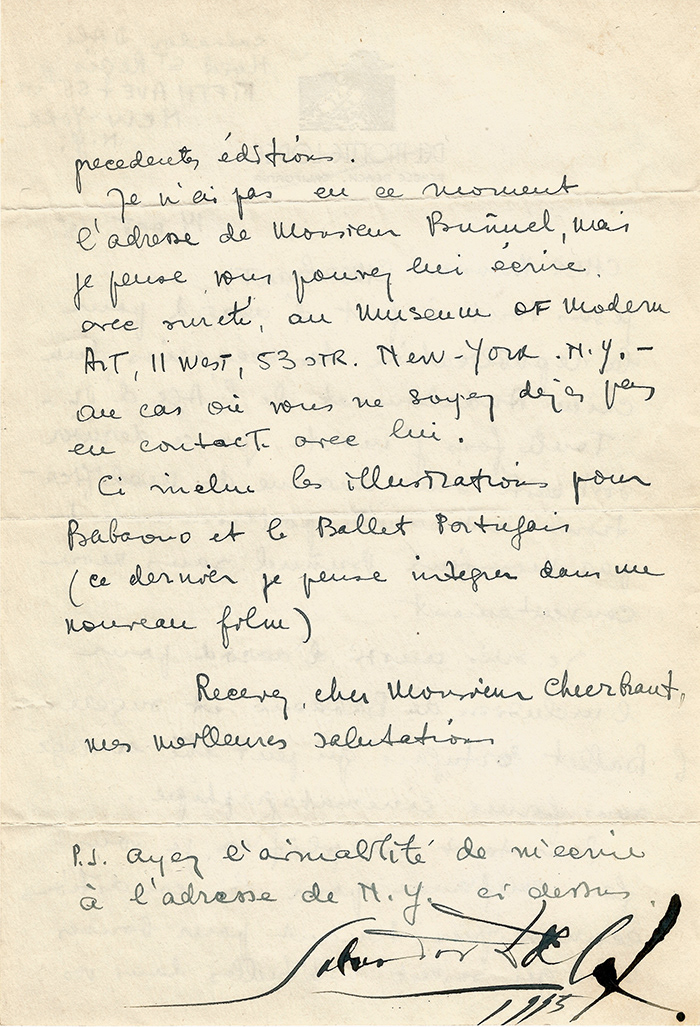 precedentes éditions.
Je n'ai pas en ce moment
l'adresse de Monsieur Buñuel, mais
je pense vous pouvez lui écrire
avec sureté, au Museum OF Modern
ART, 11 West, 53 STR. New-York. N.Y. –
au cas où vous ne soyez dejas pas
en contact avec lui.
Ci inclue les illustrations pour
Babaouo et le Ballet Portugais
(ce dernier je pense integrer dans un
nouveau film)
Recevez, cher Monsieur Cheerbrant,
mes meilleures salutations
P.S. ayez l'aimablité de m'ecrire
à l'adresse de N.Y. ci dessus.
Salvador Dalí